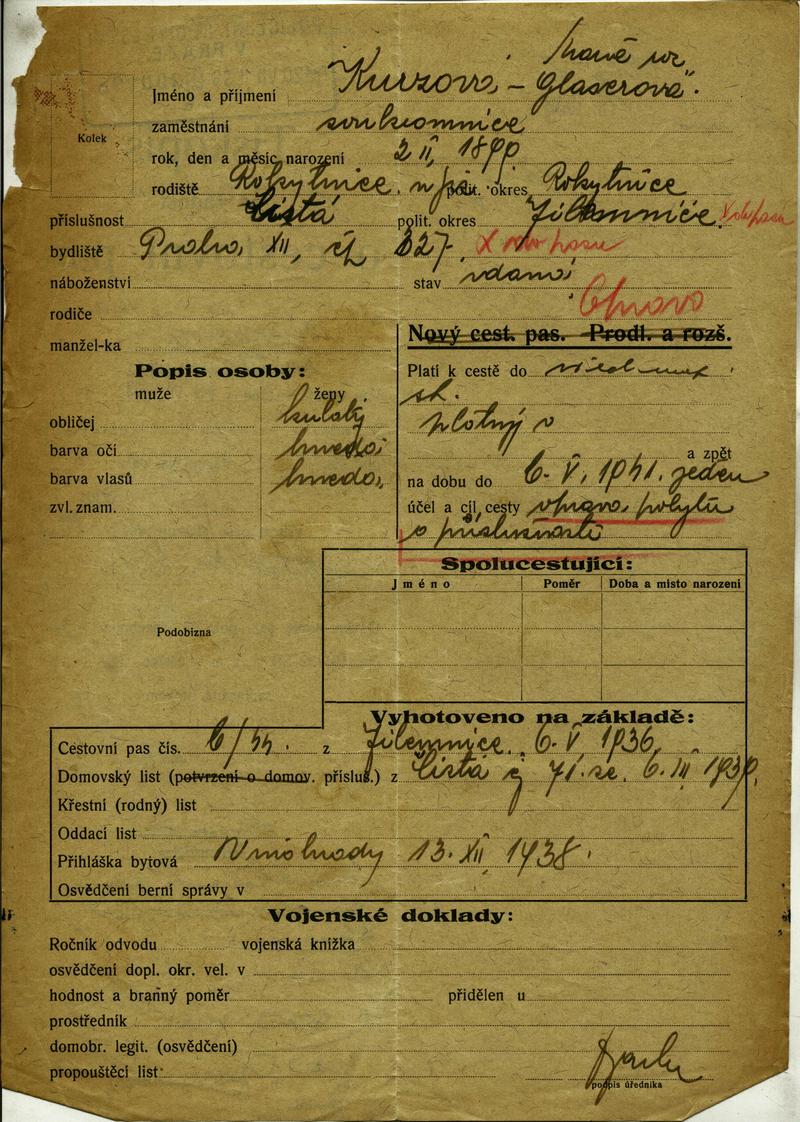 Kurzová - Glaserová".
Jméno a příjmení
Kolek
zaměstnání soukromnice
rok, den a měsíc narození 2 II,
rodiště Rokytnice polit. okres Rokytnice
příslušnost Listá polit. okres Jilemnice.
bydliště Praha XII, čp 327. X do pasu
náboženství stav vdaná
Oprava
rodiče
Nový cest. pas. Prodl. a rozš.
manžel-ka
Popis osoby: Platí k cestě do
muže ženy st.
obličej kulatý platný v
barva očí hnědá a zpět
barva vlasů hnědá, na dobu do 6. V, 1941. jeden
zvl. znam. účel a cíl cesty oprava pobytu
a příslušnosti
Spolucestující:
Jméno Poměr Doba a místo narození
Podobizna
Vyhotoveno na základě:
Cestovní pas čís. 6/44. z Jilemnice, 6. V 1936
Domovský list (potvrzení o domov. přísluš.) z Listá 6. III 1939.
Křestní (rodný) list
Oddací list
Přihláška bytová Vinohrady 13. XII 1938.
Osvědčení berní správy v
Vojenské doklady:
Ročník odvodu vojenská knížka
osvědčení dopl. okr. vel. v
hodnost a branný poměr přidělen u
prostředník
domobr. legit. (osvědčení)
propouštěcí list
podpis úředníka